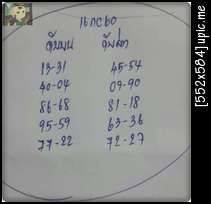 16กC60
13-31 45-54
40-04 09-90
86-68 81-18
95-59 63-36
77-22 72-27
[552x584] upic.me